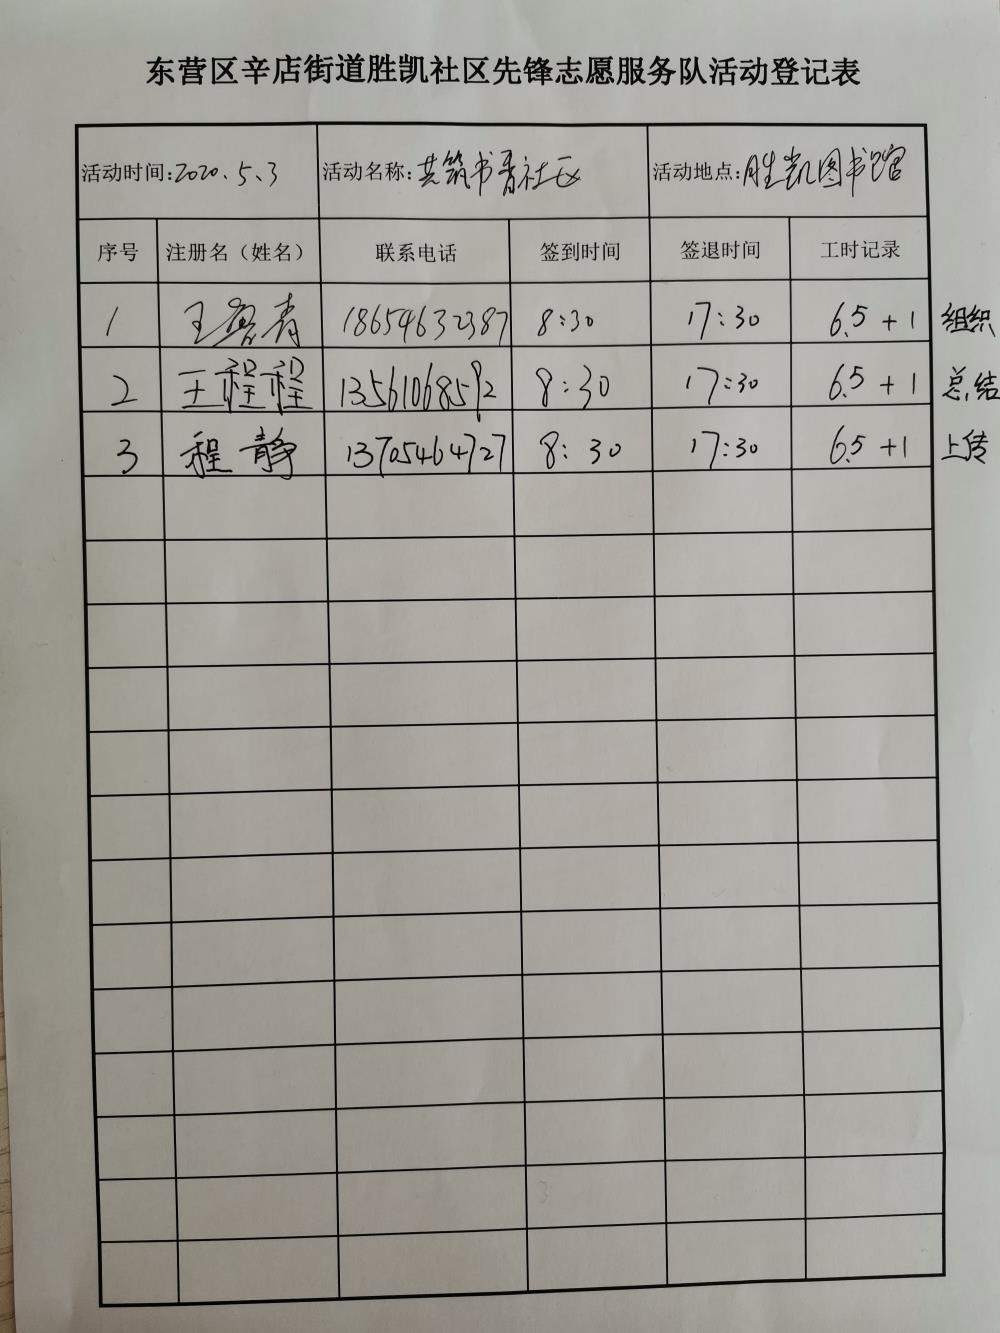 东营区辛店街道胜凯社区先锋志愿服务队活动登记表
活动时间:2020.5.3 活动名称:共筑书香社区 活动地点:胜凯图书馆
序号 注册名（姓名） 联系电话 签到时间 签退时间 工时记录
1 王鲁青 18654632387 8:30 17:30 6.5+1 组织
2 王程程 13561068592 8:30 17:30 6.5+1 总结
3 程静 13705464727 8:30 17:30 6.5+1 上传